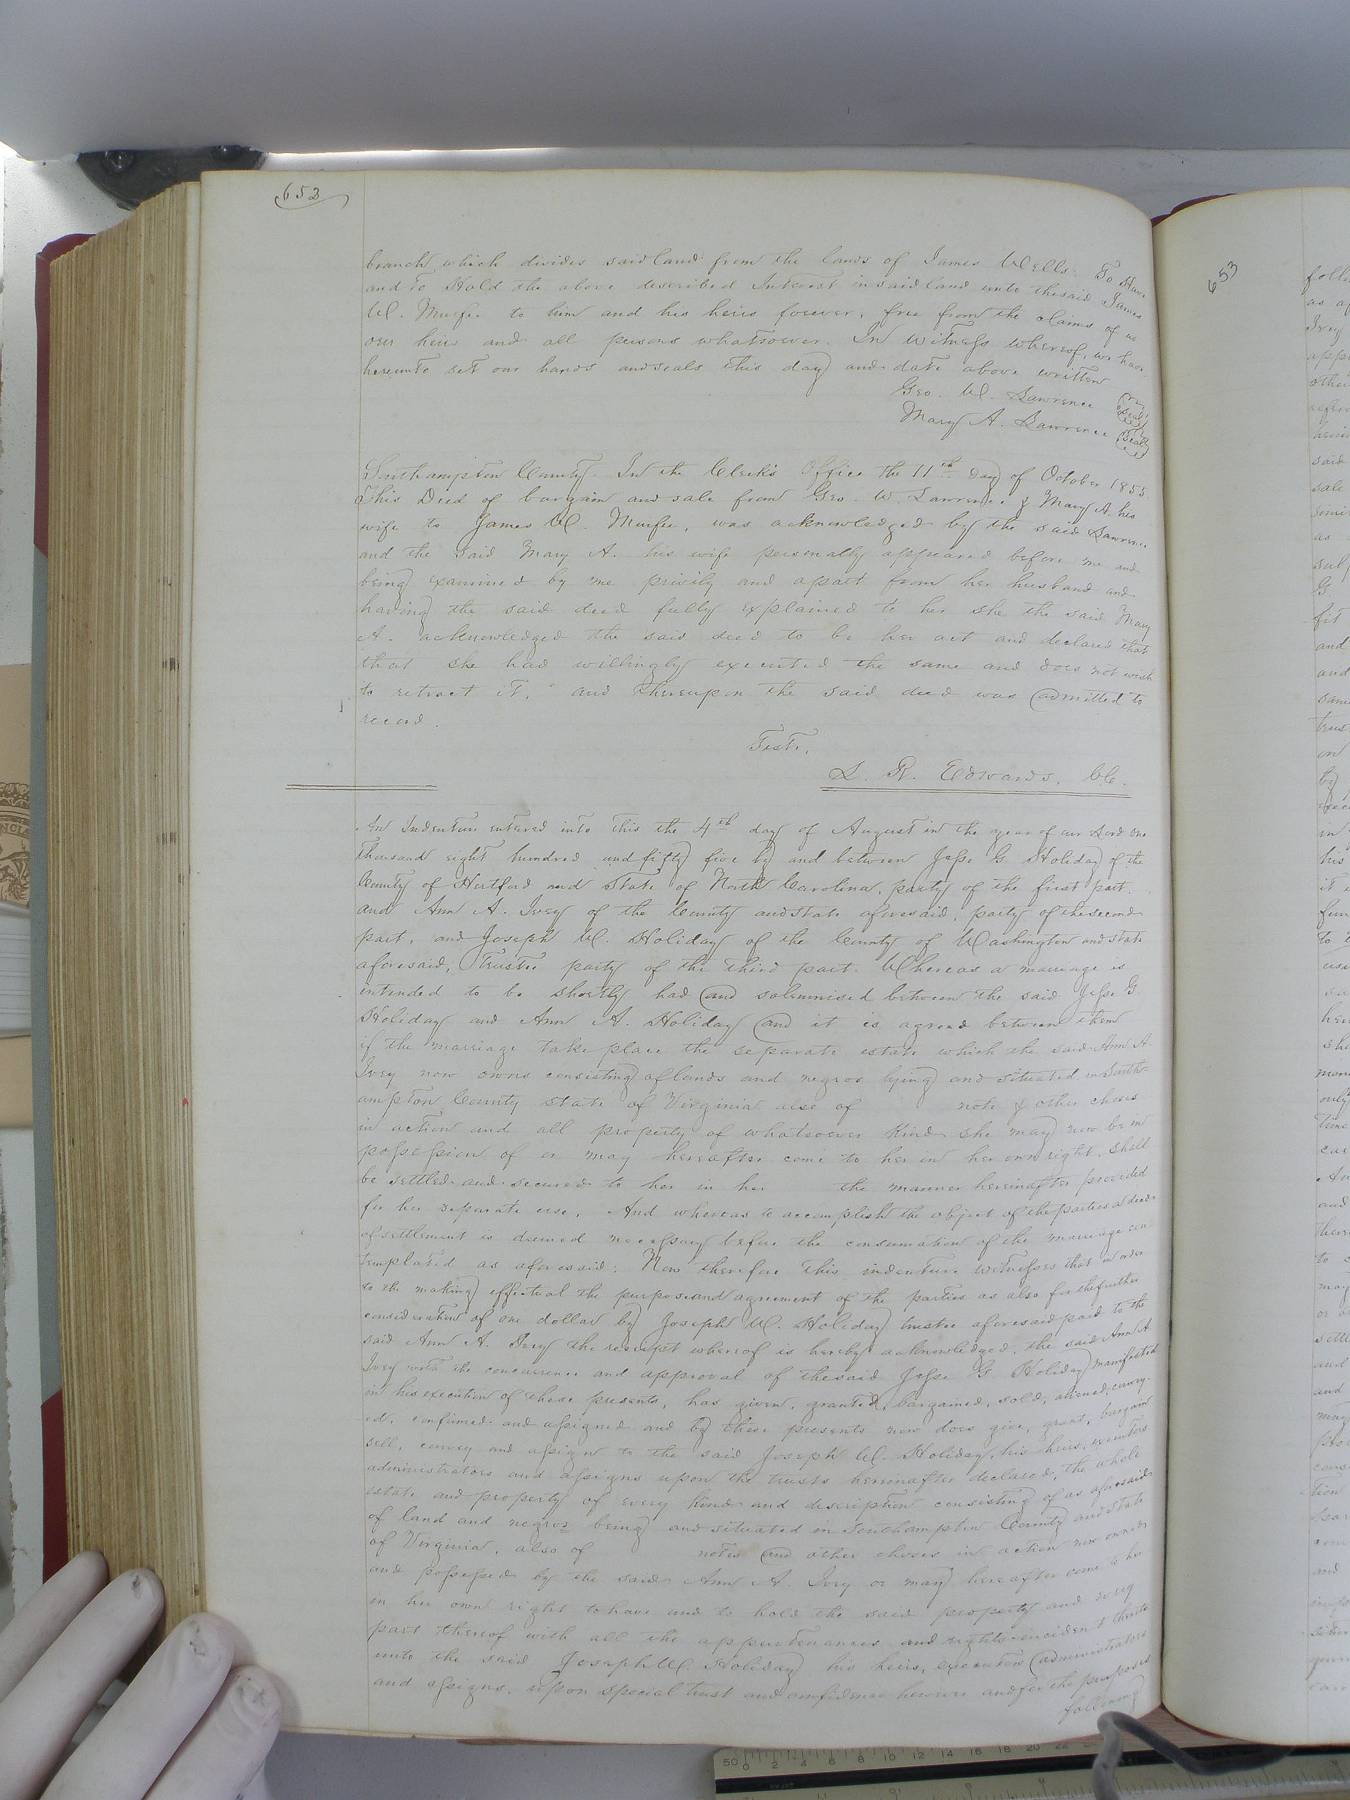 652
branch which divides said land from the lands of James Wells. To Have
and to Hold the above described Interest in said land unto the said James
W. Murfee to him and his heirs forever, free from the claims of us
our heirs and all persons whatsoever. In Witness whereof, we have
hereunto set our hands and seals this day and date above written
Geo. W. Lawrence (Seal)
Mary A. Lawrence (Seal)
Southampton County. In the Clerk's Office the 11th day of October 1855
This Deed of bargain and sale from Geo. W. Lawrence & Mary A. his
wife to James W. Murfee, was acknowledged by the said Lawrence
and the said Mary A. his wife personally appeared before me and
being examined by me privily and apart from her husband and
having the said deed fully explained to her she the said Mary
A. acknowledged the said deed to be her act and declared that
that she had willingly executed the same and does not wish
to retract it, and thereupon the said deed was admitted to
record.
Teste,
L. R. Edwards, Clk.
An Indenture entered into this the 4th day of August in the year of our Lord one
thousand eight hundred and fifty five by and between Jesse G. Holiday of the
County of Hertford and State of North Carolina, party of the first part,
and Ann A. Ivey of the County and State aforesaid, party of the second
part, and Joseph W. Holiday of the County of Washington and State
aforesaid, Trustee party of the third part. Whereas a marriage is
intended to be shortly had and solemnised between the said Jesse G.
Holiday and Ann A. Holiday and it is agreed between them
if the marriage take place the separate estate which the said Ann A.
Ivey now owns consisting of lands and negros lying and situated in South-
ampton County State of Virginia also of note & other choses
in action and all property of whatsoever kind she may now be in
possession of or may hereafter come to her in her own right, shall
be settled and secured to her in her the manner hereinafter provided
for her separate use. And whereas to accomplish the object of the parties a deed
of settlement is deemed necessary before the consumation of the marriage con
templated as aforesaid: Now therefore this indenture witnesses that in order
to the making effectual the purpose and agreement of the parties as also for the further
consideration of one dollar by Joseph W. Holiday trustee aforesaid paid to the
said Ann A. Ivey the receipt whereof is hereby acknowledged, the said Ann A.
Ivey with the concurrence and approval of the said Jesse G. Holiday manifested
in his execution of these presents, has given, granted, bargained, sold, aliened, convey-
ed, confirmed and assigned and by these presents now does give, grant, bargain
sell, convey and assign to the said Joseph W. Holiday, his heirs, executors
administrators and assigns upon the trusts hereinafter declared, the whole
estate and property of every kind and description consisting of as aforesaid
of land and negros being and situated in Southampton County and State
of Virginia, also of notes and other choses in action now owned
and possessed by the said Ann A. Ivey or may hereafter come to her
in her own right to have and to hold the said property and every
part thereof with all the appurtenances and rights incident thereto
unto the said Joseph W. Holiday his heirs, executors administrators
and assigns, upon special trust and confidence however and for the purposes
following
653